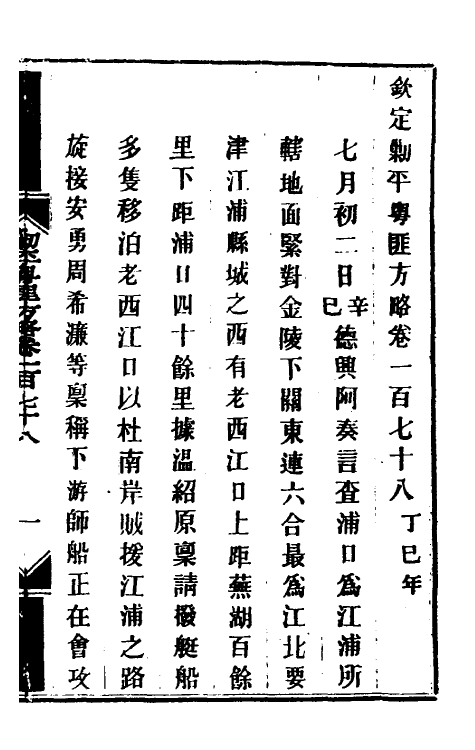 欽定勦平粤匪方略卷一百七十八丁巳年
七月初二日辛巳德興阿奏言查浦口爲江浦所
轄地面緊對金陵下關東連六合最爲江北要
津江浦縣城之西有老西江口上距蕪湖百餘
里下距浦口四十餘里據溫紹原稟請撥艇船
多隻移泊老西江口以杜南岸賊援江浦之路
旋接安勇周希濂等稟稱下游師船正在會攻
卷一百七十八
一